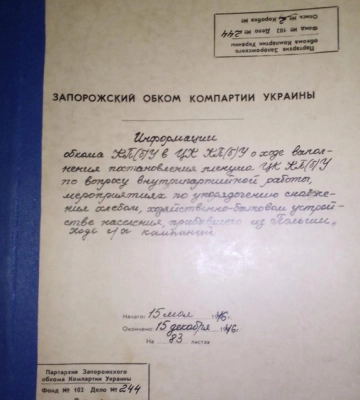 Партархив Запорожского
обкома Компартии Украины
Фонд № 102 Дело № 244
Опись № 2 Коробка №
ЗАПОРОЖСКИЙ ОБКОМ КОМПАРТИИ УКРАИНЫ
Информации
обкома КП(б)У в ЦК КП(б)У о ходе выпол-
нения постановления пленума ЦК КП(б)У
по вопросу внутрипартийной работы,
мероприятиях по упорядочению снабже-
ния хлебом, хозяйственно-бытовом устрой-
стве населения, прибывшего из Польши,
ходе с/х кампаний
Начато: 15 мая 46г.
Окончено: 15 декабря 1946г.
На 83 листах
Партархив Запорожского
обкома Компартии Украины
Фонд № 102 Дело № 244